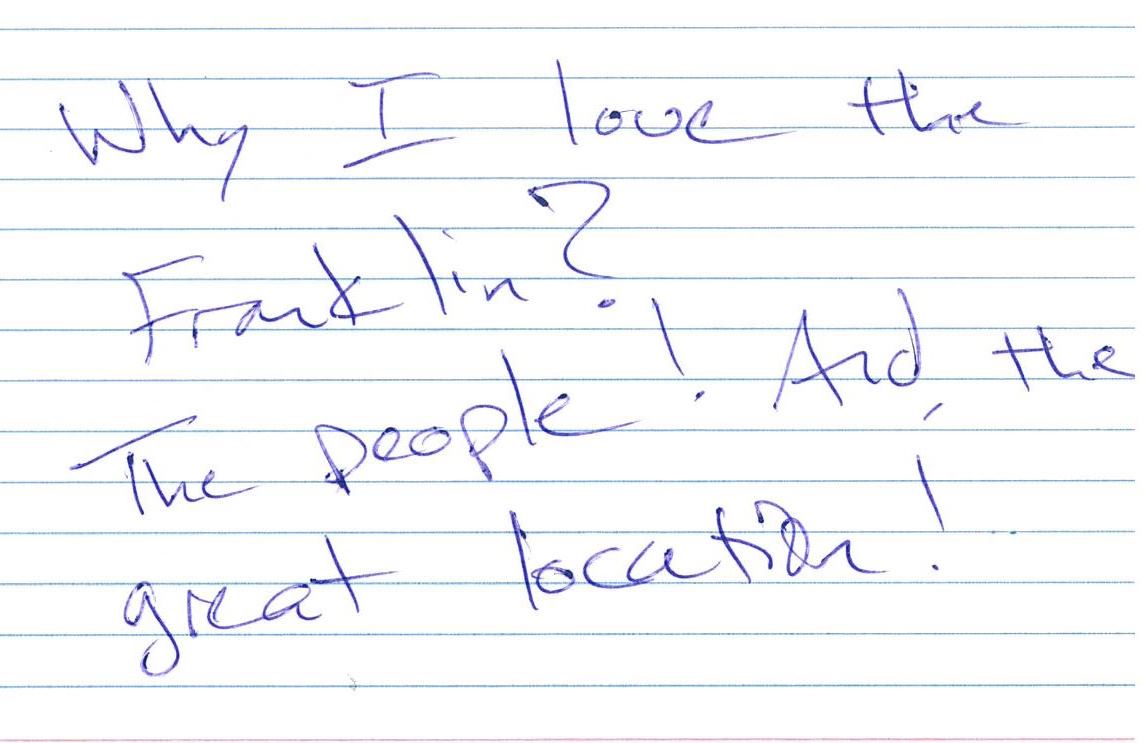 Why I love the
Franklin?
The people! And, the
great location!